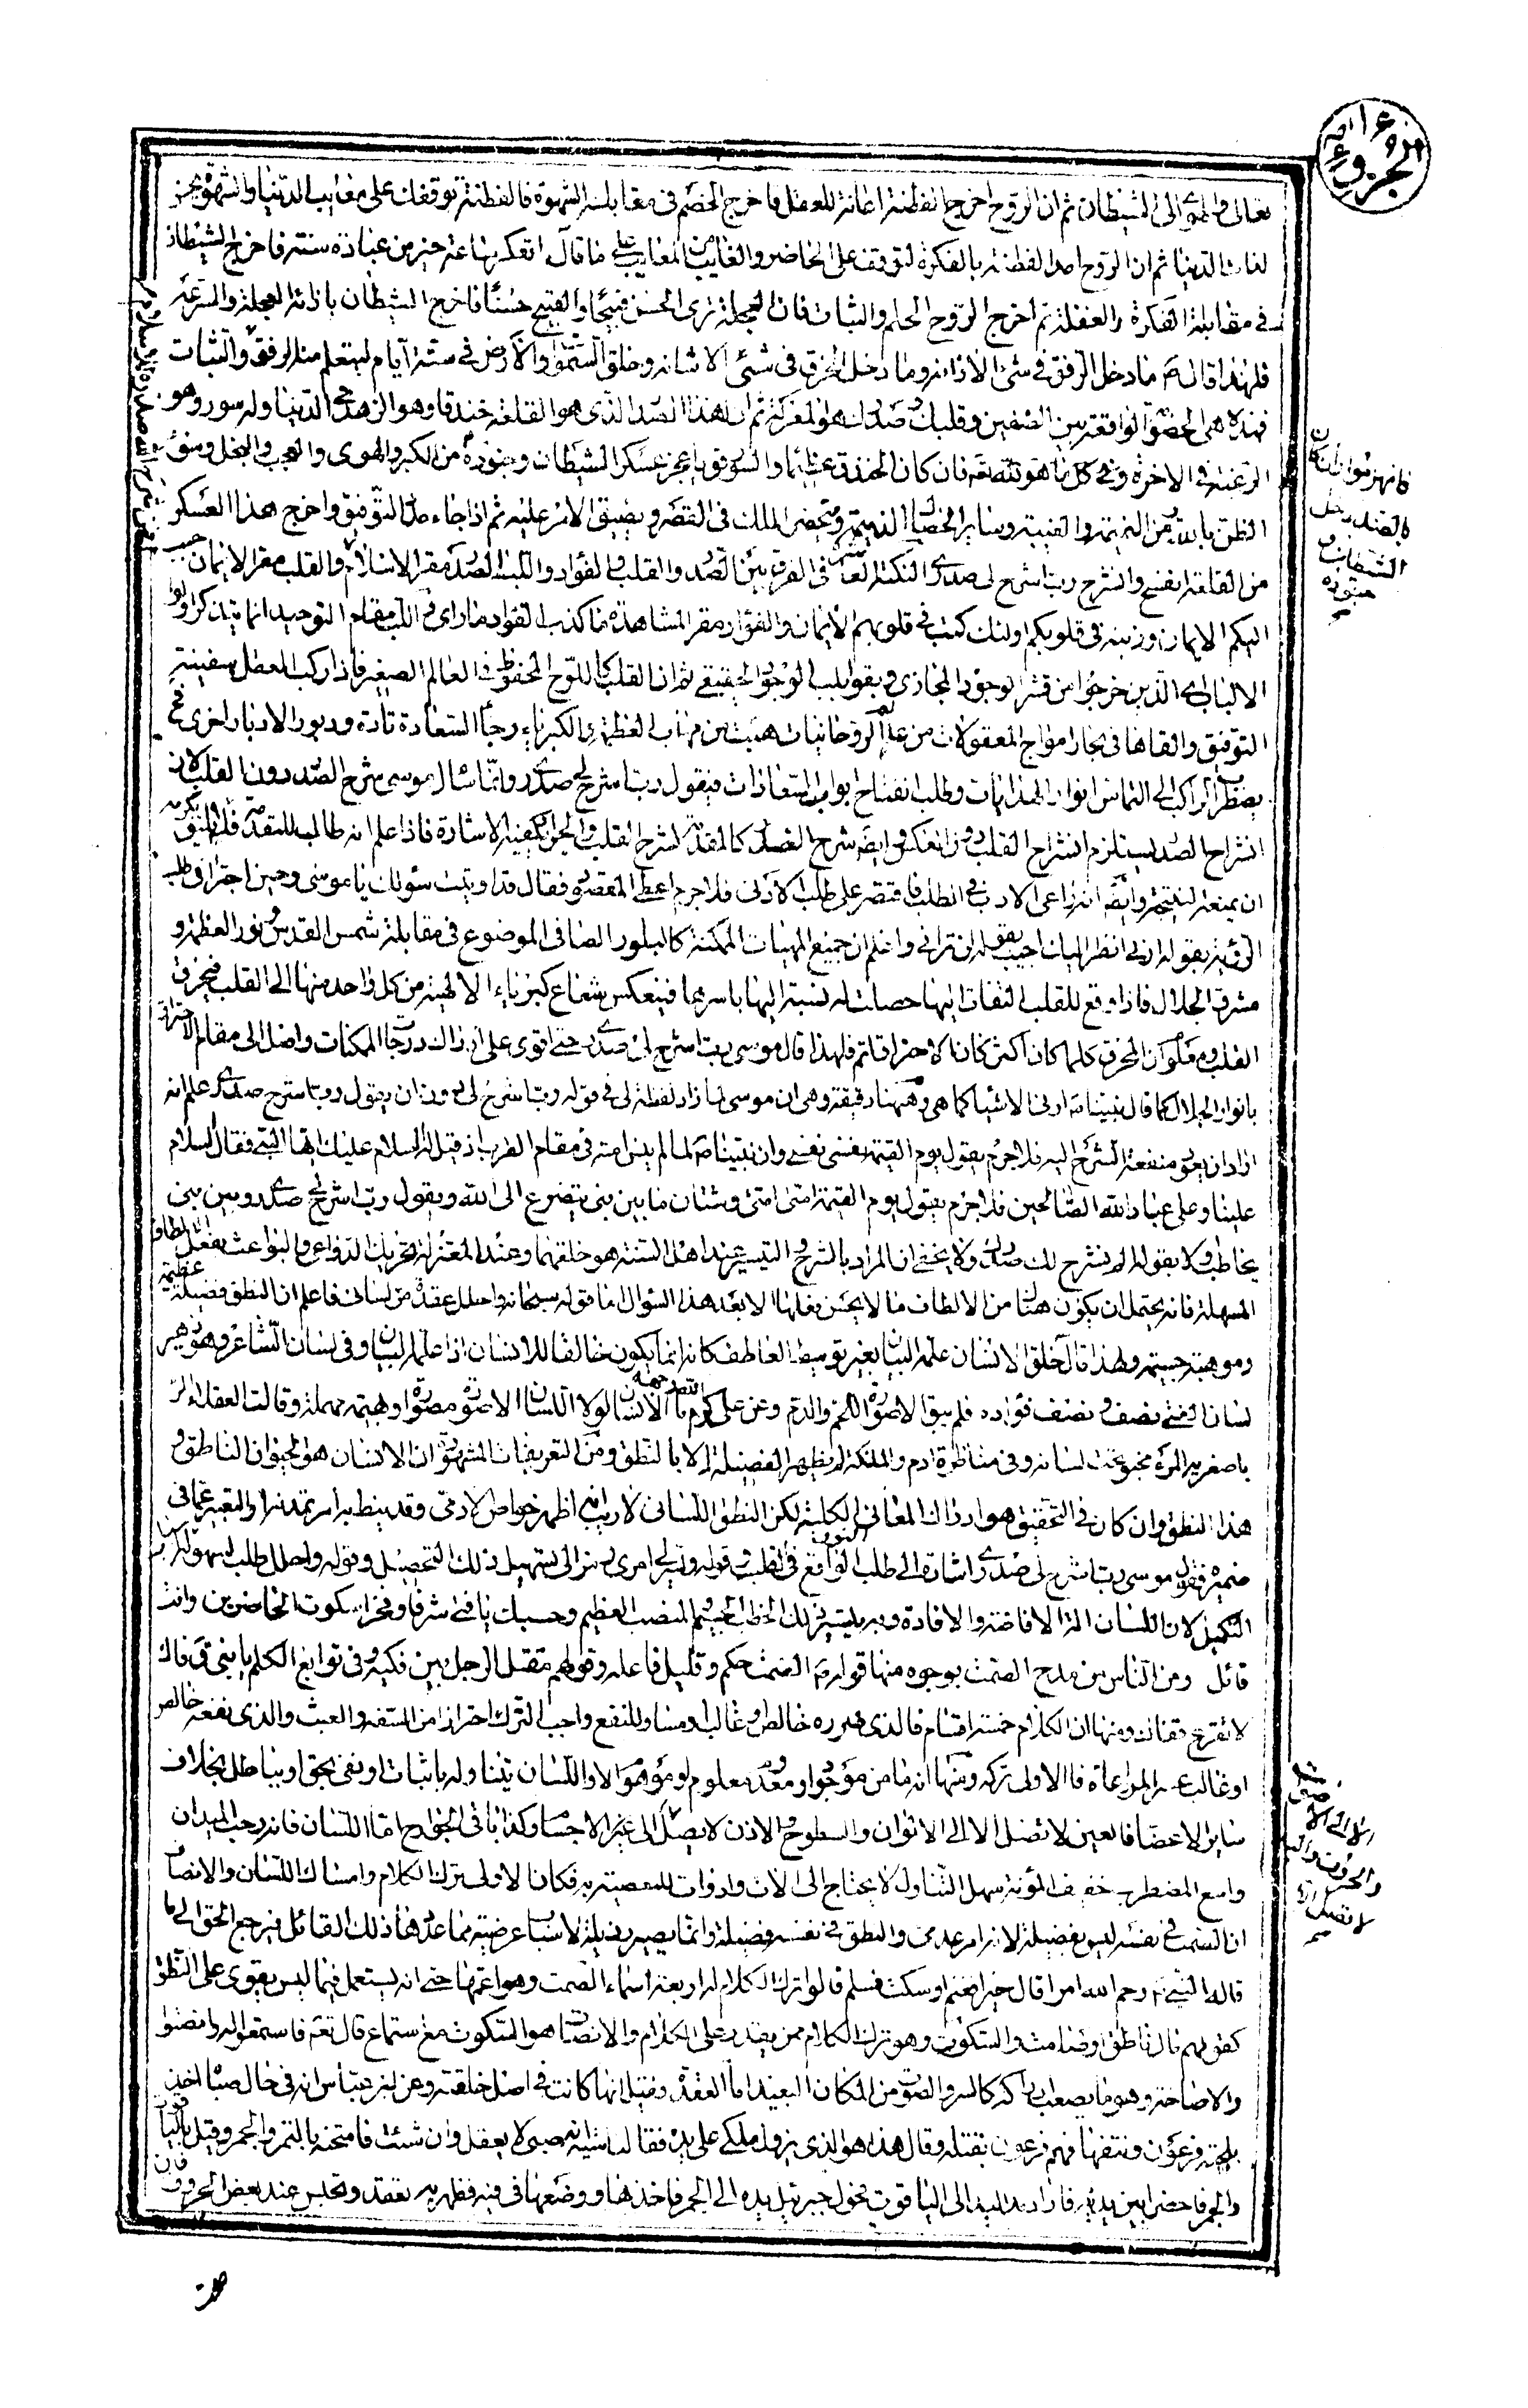 الجزو ١٦
تعالى والهوى الى الشيطان ثم ان الروح اخرج الفطنة اعانة للعقل فاخرج الخصم فى مقابلة الشهوة فالفطنة توقفك على معايب الدنيا والشهوة تحرك
لذات الدنيا ثم ان الروح امد الفطنة بالفكرة لتوقف على الحاضر والغايب من المعايب على ما قال تفكر ساعة خير من عبادة سنة فاخرج الشيطان
فى مقابلة الفكرة الغفلة ثم اخرج الروح الحلم والثبات فان العجلة ترى الحسن قبيحا والقبيح حسنا فاخرج الشيطان بازائه العجلة والسرعة
فلهذا قال ص ما دخل الرفق فى شئ الا زانه وما دخل الخرق فى شئ الا شانه وخلق السموات والارض فى ستة ايام ليتعلم منه الرفق والثبات
فهذه هى الخصومة الواقعة بين الصفين وقلبك وصدرك هو المعركة ثم ان لهذا الصدر الذى هو القلعة خندقا وهو الزهد فى الدنيا وله سور وهو
الرغبة فى الاخرة فان كان الخندق عظيما والسور قويا عجز عسكر الشيطان وجنوده من الكبر والهوى والعجب والبخل وسوء
الظن بالله ومن النميمة والغيبة وساير الخصال الذميمة وينحصر الملك فى القصر ويضيق الامر عليه ثم اذا جاء مدد التوفيق واخرج هذا العسكر
من القلعة انفسح وانشرح رب اشرح لى صدرى النكتة العاشرة فى الفرق بين الصدر والقلب والفؤاد واللب الصدر مقر الاسلام والقلب مقر الايمان حبب
اليكم الايمان وزينه فى قلوبكم اولئك كتب فى قلوبهم الايمان والفؤاد مقر المشاهدة ما كذب الفؤاد ما راى واللب مقام التوحيد انما يتذكر اولوا
الالباب اى الذين خرجوا من قشر الوجود المجازى وبقوا بلب الوجود الحقيقى ثم ان القلب كاللوح المحفوظ فى العالم الصغير فاذا ركب العقل سفينة
التوفيق والقاها فى بحار امواج المعقولات من عالم الروحانيات هبت من مهاب العظمة والكبرياء رخاء السعادة تارة ودبور الادبار اخرى فح
يضطر الراكب الى التماس انوار الهدايات وطلب انفتاح ابواب السعادات فيقول رب اشرح لى صدرى وانما سأل موسى شرح الصدر دون القلب لان
انشراح الصدر يستلزم انشراح القلب دون العكس وايضا شرح الصدر كالمقدمة لشرح القلب والحر تكفيه الاشارة فاذا علم انه طالب للمقدمة فلا يليق بكرمه
ان يمنعه النتيجة وايضا انه راعى الادب فى الطلب فاقتصر على طلب الادنى فلا جرم اعطى المقصود فقال قد اوتيت سؤلك يا موسى وحين اجترا فى طلب
الرؤية بقوله ارنى انظر اليك اجيب بقوله لن ترانى واعلم ان جميع المهيات الممكنة كالبلور الصافى الموضوع فى مقابلة شمس القدس ونور العظمة و
مشرق الجلال فاذا وقع للقلب التفات اليها حصلت له نسبة اليها باسرها فينعكس شعاع كبرياء الالهية من كل واحد منها الى القلب فيحرق
القلب ومعلوم ان المحرق كلما كان اكثر كان الاحتراق اتم فلهذا قال موسى رب اشرح لى صدرى حتى اقوى على ادراك درجات الممكنات واصل الى مقام الاحتراق
بانوار الجلال كما قال نبينا ص ارنى الاشيا كما هى وههنا دقيقة وهى ان موسى لما زاد لفظة لى فى قوله رب اشرح لى دون ان يقول رب اشرح صدرى علم انه
اراد ان يعود منفعة الشرح اليه فلا جرم يقول يوم القيمة نفسى نفسى وان نبينا ص لما لم ينس امته فى مقام القرب اذ قيل له السلام عليك ايها النبى فقال السلام
علينا وعلى عباد الله الصالحين فلا جرم يقول يوم القيمة امتى امتى وشتان ما بين نبى يتضرع الى الله ويقول رب اشرح لى صدرى وبين نبى
يخاطب اولا بقوله الم نشرح لك صدرك ولا يخفى ان المراد بالشرح والتيسير عند اهل السنة هو خلقهما وعند المعتزلة تحريك الدواعى والبواعث بفعل الالطاف
المسهلة فانه يحتمل ان يكون هناك من الالطاف ما لا يحسن فعلها الا بعد هذا السؤال اما قوله سبحانه واحلل عقدة من لسانى فاعلم ان النطق فضيلة عظيمة
وموهبة جسيمة ولهذا قال خلق الانسان علمه البيان بغير توسيط العاطف كانه انما يكون خالقا للانسان اذا علمه البيان وفى لسان الشاعر وهو زهير
لسان الفتى نصف ونصف فؤاده فلم يبق الا صورة اللحم والدم وعن على كرم الله وجهه ما الانسان لولا اللسان الا صورة مصورة او بهيمة مهملة وقالت العقلاء المرء
باصغريه المرء مخبو تحت لسانه وفى مناظرة ادم والملئكة لم يظهر الفضيلة الا بالنطق ومن التعريفات المشهورة ان الانسان هو الحيوان الناطق و
هذا النطق وان كان فى التحقيق هو ادراك المعانى الكلية لكن النطق اللسانى لا ريب انه اظهر خواص الادمى وقد ينط به امر تمدنه والتعبير عما فى
ضميره فقول موسى رب اشرح لى صدرى اشارة الى طلب النور الواقع فى القلب وقوله ويسر لى امرى رمز الى تسهيل ذلك التحصيل وقوله واحلل طلب لسهولة اسباب
التكميل لان اللسان الة الافاضة والافادة وبه يتيسر ذلك الخطب الجسيم والمنصب العظيم وحسبك يا فتى شرفا وفخرا سكوت الحاضرين وانت
قائل ومن الناس من مدح الصمت بوجوه منها قوله ص الصمت حكم وقليل فاعله وقولهم مقتل الرجل بين فكيه وفى نوابغ الكلم يا بنى ق فاك
لا تقرع قفاك ومنها ان الكلام خمسة اقسام فالذى ضرره خالص او غالب او مساو للنفع واجب الترك احترازا من السفه والعبث والذى نفعه خالص
او غالب عسر المراعاة فالاولى تركه ومنها انه ما من موجود او معدوم معلوم او موهوم الا واللسان يتناوله باثبات او نفى بحق او بباطل بخلاف
ساير الاعضا فالعين لا تصل الا الى الالوان والسطوح والاذن لا يصل الى غير الاجسام وكذا باقى الجوارح اما اللسان فانه رحب الميدان
واسع المضطرب خفيف المؤنة سهل التناول لا يحتاج الى الات وادوات للمعصية به فكان الاولى ترك الكلام وامساك اللسان والانصاف
ان الصمت فى نفسه ليس بفضيلة لانه امر عدمى والنطق فى نفسه فضيلة وانما يصير رذيلة لاسباب عرضية مما عددها ذلك القائل فيرجع الحق الى ما
قاله النبى ص رحم الله امرا قال خيرا فغنم او سكت فسلم قالوا ترك الكلام له اربعة اسماء الصمت وهو اعمها حتى انه يستعمل فيما ليس يقوى على النطق
كقولهم مال ناطق او صامت والسكوت وهو ترك الكلام ممن يقدر على الكلام والانصات هو السكوت مع استماع قال تعم فاستمعوا له وانصتوا
والاصاخة وهو ما يصعب ادراكه كالسر والصوت من المكان البعيد اما العقدة فقيل انها كانت فى اصل خلقته وعن ابن عباس انه فى حال صباه اخذ
بلحية فرعون ونتفها فهم فرعون بقتله وقال هذا هو الذى يزول ملكى على يده فقالت اسية انه صبى لا يعقل وان شئت فامتحنه بالتمر والجمر وقيل بالياقوت
والجمر فاحضرا بين يديه فاراد مد اليد الى الياقوت فحول جبرئيل يده الى الجمر فاخذها ووضعها فى فيه فظهر به تعقد وتحبس عند بعض الحروف فان